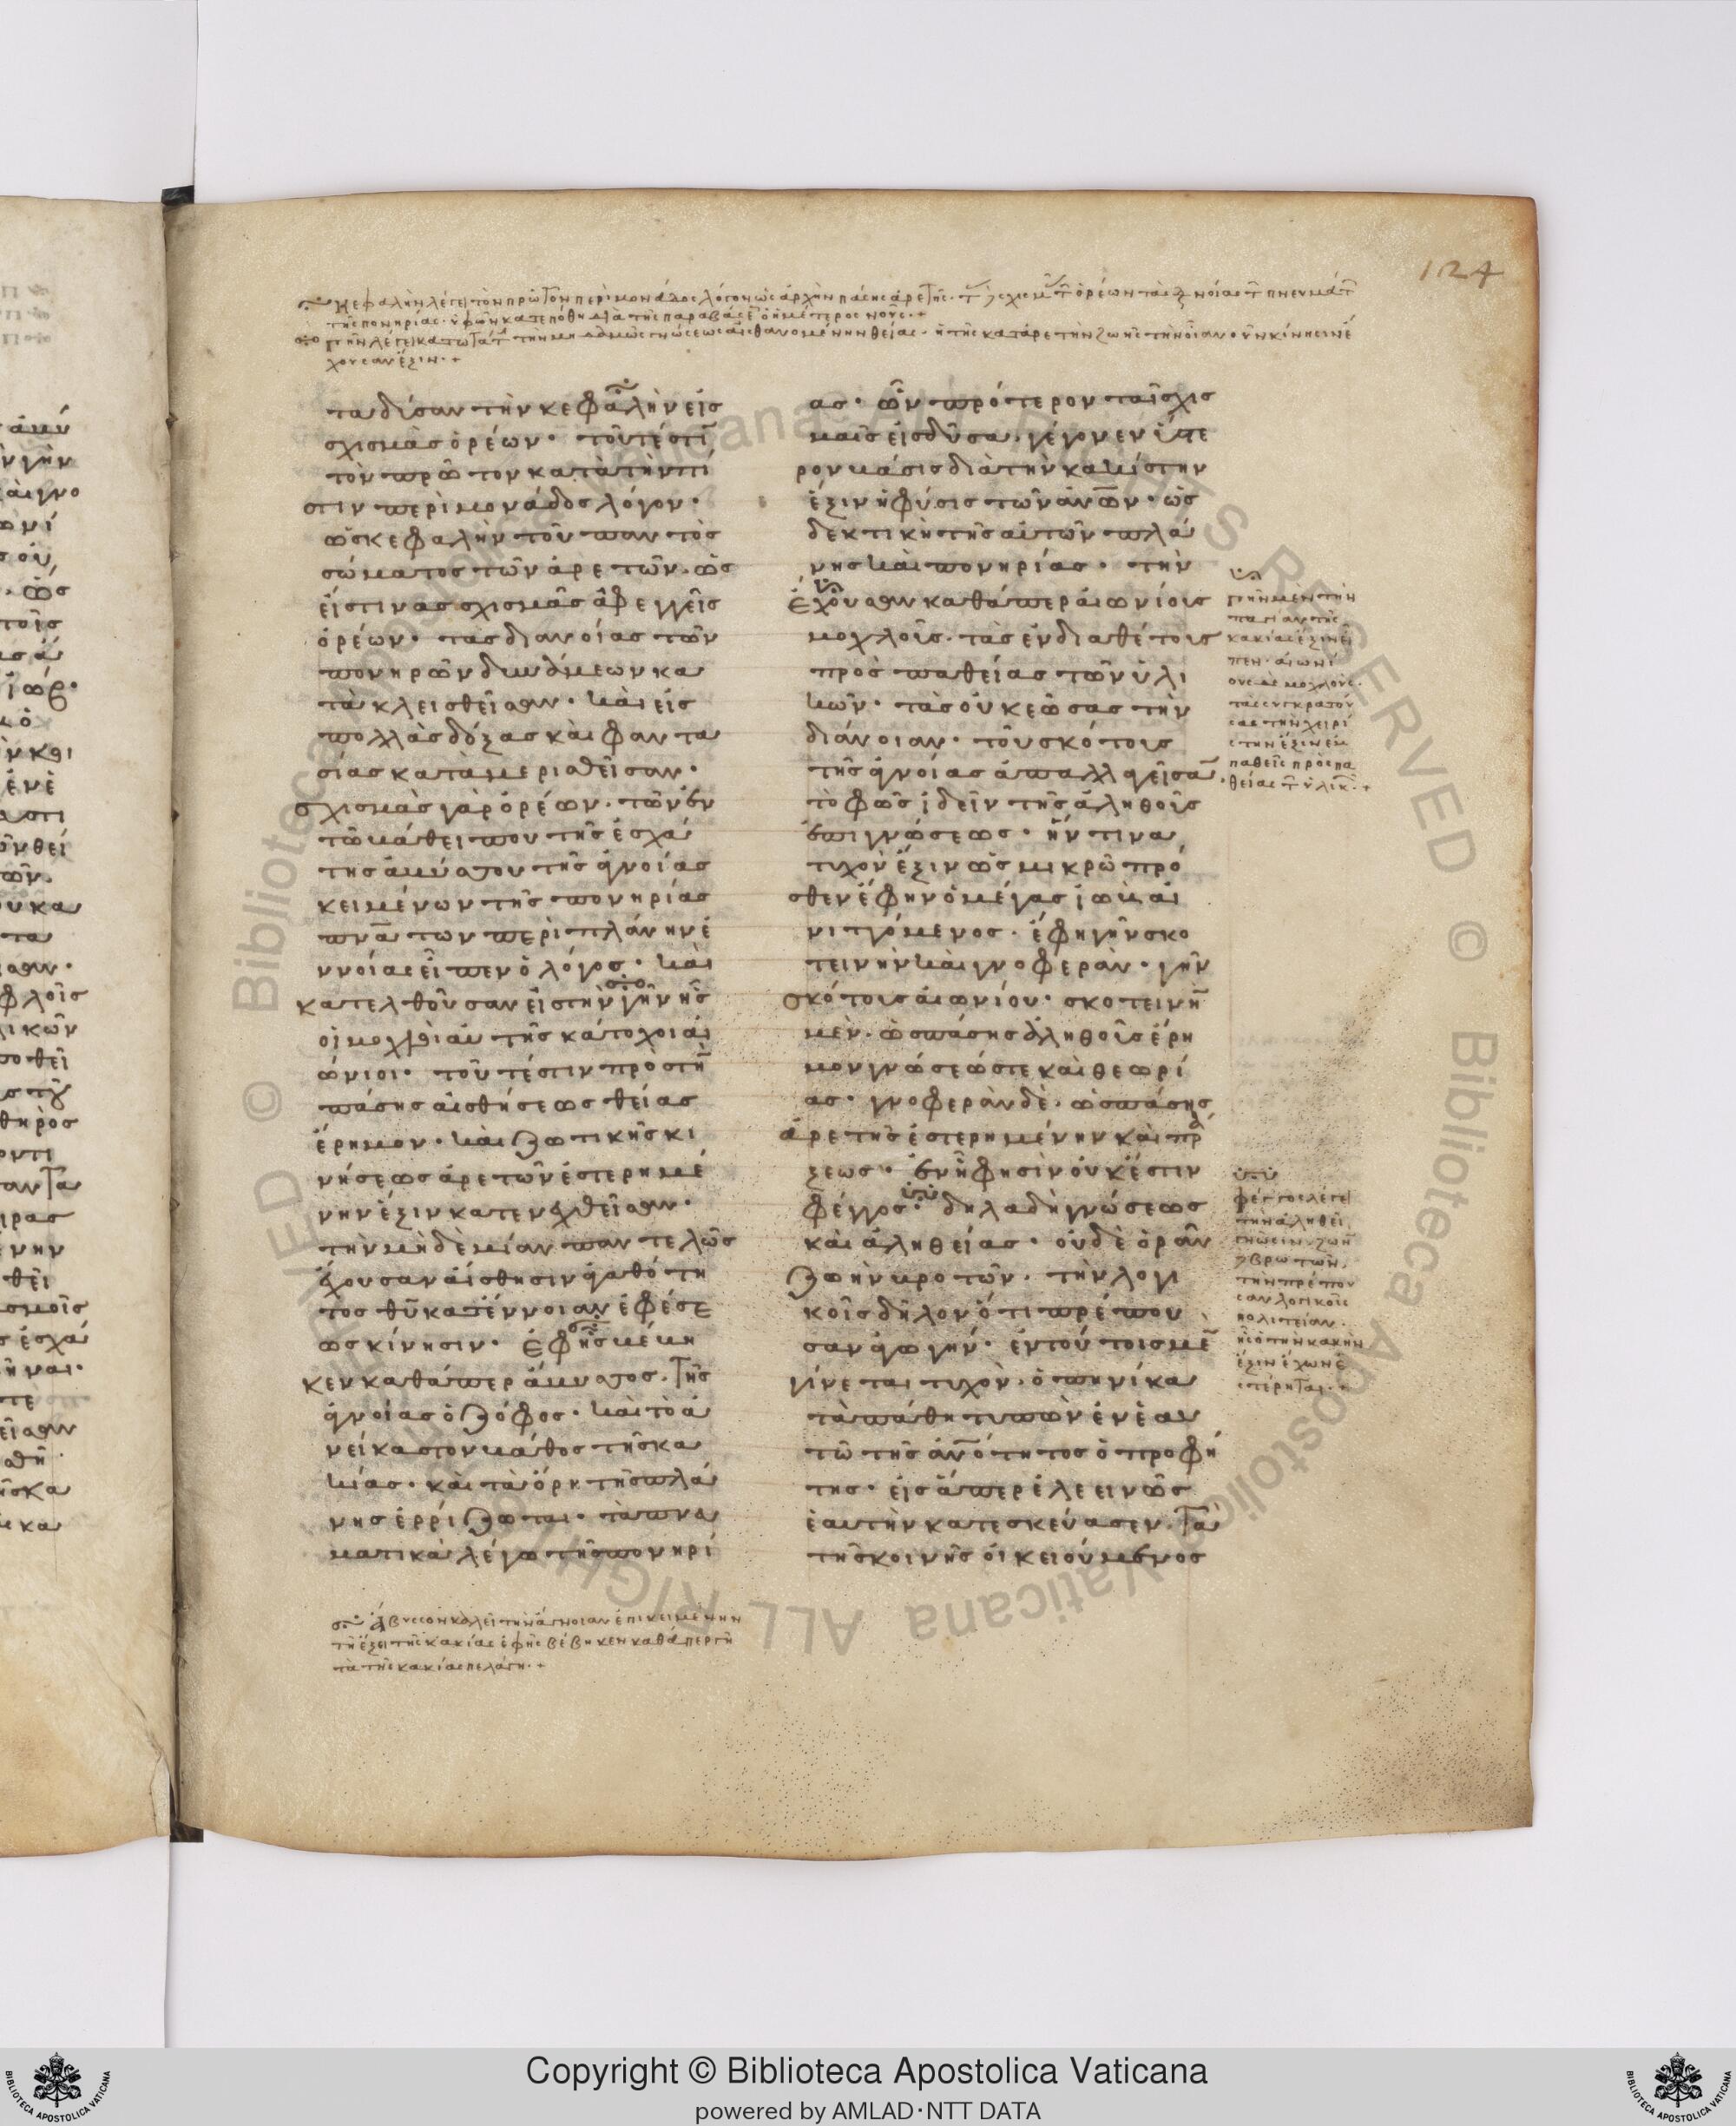 124
Κεφαλὴν λέγει τὸν πρῶτον περὶ μονάδος λόγον ὡς ἀρχὴν πάσης ἀρετῆς· σχισμ ὀρέων τὰς νοίας πνευμάτ
τῆς πονηρίας· ὑφ ὧν κατεπόθη διὰ τῆς παραβάσε ὁ ἡμέτερος νοῦς·+
γῆν λέγει κατωτάτ τὴν μηδαμῶς γνώσεως αἰσθανομένην θείας· ἢ τῆς κατ ἀρετὴν ζωῆς τὴν οἵαν οὖν κίνησιν ἔ
χουσαν ἕξιν·+
ταδύσαν τὴν κεφαλὴν εἰς
σχισμὰς ὀρέων· τουτέστι
τὸν πρῶτον κατὰ τὴν πί
στιν περὶ μονάδος λόγον·
ὡς κεφαλὴν τοῦ παντὸς
σώματος τῶν ἀρετῶν· ὡς
εἴς τινας σχισμὰς ἀφεγγεῖς
ὀρέων· τὰς διανοίας τῶν
πονηρῶν δυνάμεων κα
τακλεισθεῖσαν· καὶ εἰς
πολλὰς δόξας καὶ φαντα
σίας καταμερισθεῖσαν·
σχισμὰς γὰρ ὀρέων· τῶν ἐν
τῷ βάθει που τῆς ἐσχά
της ἀβύσσου τῆς ἀγνοίας
κειμένων τῆς πονηρίας
πνάτων περὶ πλάνην ἐ
ννοίας εἶπεν ὁ λόγος· καὶ
κατελθοῦσαν εἰς τὴν γῆν ἧς
οἱ μοχλοὶ αὐτῆς κάτοχοι αἰ
ώνιοι· τουτέστιν πρὸς τὴν
πάσης αἰσθήσεως θείας
ἔρημον· καὶ ζωτικῆς κι
νήσεως ἀρετῶν ἐστερημέ
νην ἕξιν κατενεχθεῖσαν·
τὴν μηδεμίαν παντελῶς
ἔχουσαν αἴσθησιν ἀγαθότη
τος θυ κατ ἔννοιαν ἐφέσε
ως κίνησιν· ἐφ ἧς βέβη
κεν καθάπερ ἄβυσσος· τῆς
ἀγνοίας ὁ ζόφος· καὶ τὸ ἀ
νείκαστον βάθος τῆς κα
κίας· καὶ τὰ ὄρη τῆς πλά
νης ἐρρίζωται· τὰ πνα
ματικὰ λέγω τῆς πονηρί
ας· ὧν πρότερον ταῖς σχισ
μαῖς εἰσδῦσα· γέγονεν ὕστε
ρον βάσις διὰ τὴν κακίστην
ἕξιν ἡ φύσις τῶν ἀνων· ὡς
δεκτικὴ τῆς αὐτῶν πλά
νης καὶ πονηρίας· τὴν
ἔχουσαν καθάπερ αἰωνίους
μοχλοὺς· τὰς ἐνδιαθέτους
προσπαθείας τῶν ὑλι
κῶν· τὰς οὐκ ἐώσας τὴν
διάνοιαν· τοῦ σκότους
τῆς ἀγνοίας ἀπαλλαγεῖσαν·
τὸ φῶς ἰδεῖν τῆς ἀληθοῦς
ἐπιγνώσεως· ἥν τινα
τυχὸν ἕξιν ὡς μικρῷ πρό
σθεν ἔφην ὁ μέγας ἰὼβ αἰ
νιττόμενος· ἔφη γῆν σκο
τεινὴν καὶ γνοφεράν· γῆν
σκότους αἰωνίου· σκοτεινὴν
μὲν· ὡς πάσης ἀληθοῦς ἔρη
μον γνώσεώς τε καὶ θεωρί
ας· γνοφερὰν δὲ· ὡς πάσης
ἀρετῆς ἐστερημένην καὶ πρά
ξεως· ἐν ᾗ φησὶν οὐκ ἔστιν
φέγγος· δηλαδὴ γνώσεως
καὶ ἀληθείας· οὐδὲ ὁρᾶν
ζωὴν βροτῶν· τὴν λογι
κοῖς δηλονότι πρέπου
σαν ἀγωγήν· ἐν τούτοις μὲν
γίνεται τυχὸν· ὁπηνίκα
τὰ πάθη τυπῶν ἐν ἑαυ
τῷ τῆς ἀνότητος ὁ προφή
της· εἰς ἅπερ ἐλεεινῶς
ἑαυτὴν κατεσκεύασεν· τὰ
τῆς κοινῆς οἰκειούμενος
γῆν μὲν τὴν
παγίαν τῆς
κακίας ἕξιν εἶ
πεν· αἰωνί
ους δὲ μοχλοὺς·
τὰς συγκρατού
σας τὴν χειρί
στην ἕξιν ἐμ
παθεῖς προσπα
θείας τ ὑλικ·+
φέγγος λέγει
τὴν ἀληθεῖ
γνῶσιν· ζωὴν
δὲ βροτῶν·
τὴν πρέπου
σαν λογικοῖς
πολιτείαν·
ἧς ὁ τὴν κακὴν
ἕξιν ἔχων ἐ
στέρηται·+
ἄβυσσον καλεῖ τὴν ἄγνοιαν ἐπικειμένην
τῇ ἕξει τῆς κακίας ἐφ ἧς βέβηκεν καθάπερ γῆ
τὰ τῆς κακίας πελάγη·+
Copyright © Biblioteca Apostolica Vaticana
powered by AMLAD·NTT DATA